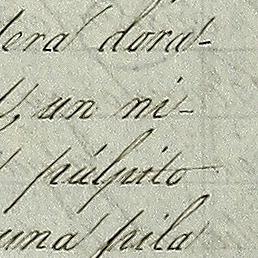 dora-
un ni-
púlpito
una pila